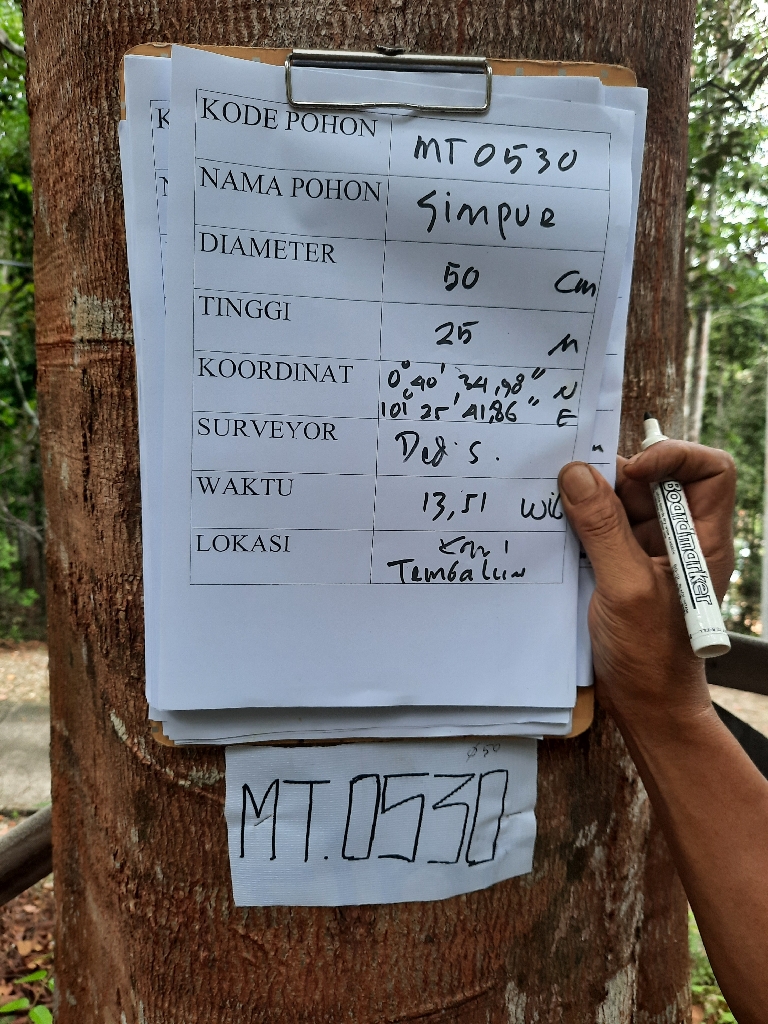 KODE POHON MT0530
NAMA POHON Simpur
DIAMETER 50 Cm
TINGGI 25 M
KOORDINAT 0° 40' 34,98" N
101° 25' 41,86" E
SURVEYOR S.
WAKTU 13,51 WIB
LOKASI
Tembalun
Boardmarker
Ø50
MT.0530